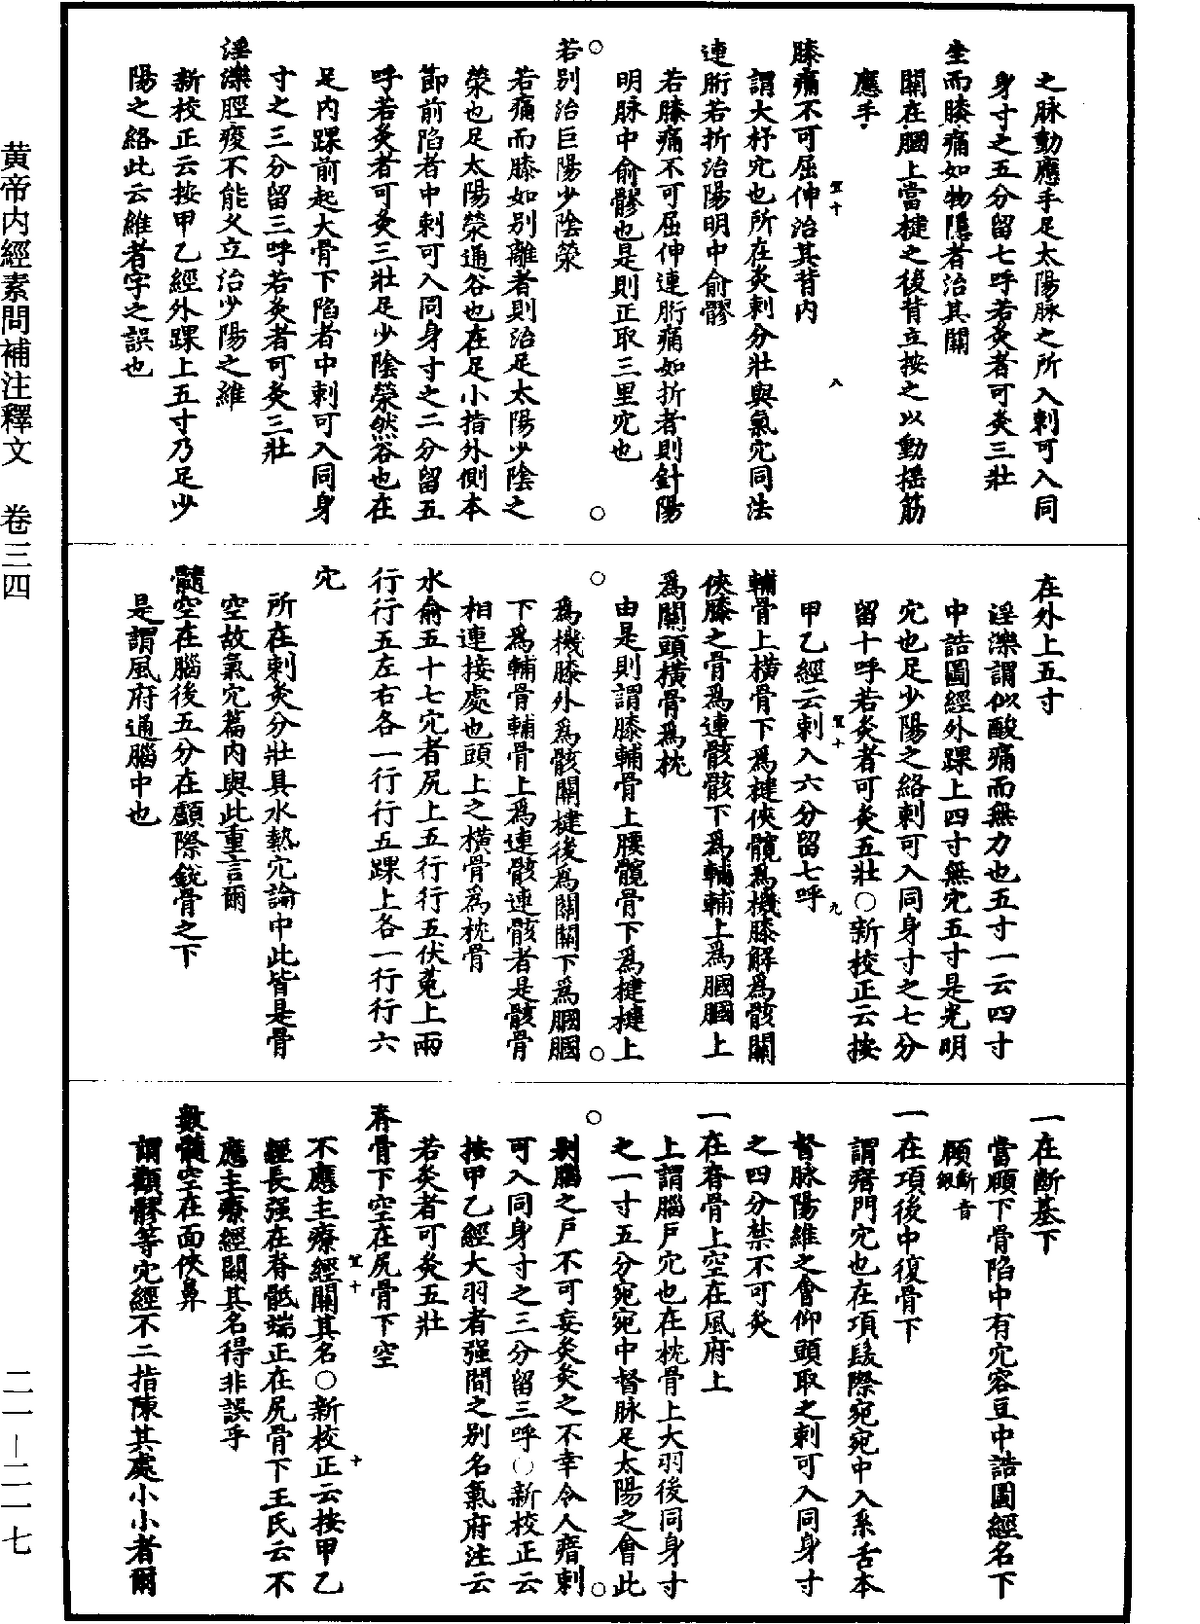 之脉動應手足太陽脉之所入刺可入同
身寸之五分留七呼若灸者可灸三壯
坐而膝痛如物隱者治其關
關在膕上當楗之後背立按之以動揺筋
應手
膝痛不可屈伸治其背内
謂大杼穴也所在灸刺分壯與氣穴同法
連䯒若折治陽明中俞髎
若膝痛不可屈伸連䯒痛如折者則針陽
明脉中俞髎也是則正取三里穴也
若别治巨陽少陰滎
若痛而膝如别離者則治足太陽少陰之
滎也足太陽滎通谷也在足小指外側本
節前陷者中刺可入同身寸之二分留五
呼若灸者可灸三壯足少陰滎然谷也在
足内踝前起大骨下陷者中刺可入同身
寸之三分留三呼若灸者可灸三壯
淫濼脛痠不能久立治少陽之維
新校正云按甲乙經外踝上五寸乃足少
陽之絡此云維者字之誤也
在外上五寸
淫濼謂似酸痛而無力也五寸一云四寸
中誥圖經外踝上四寸無穴五寸是光明
穴也足少陽之絡刺可入同身寸之七分
留十呼若灸者可灸五壯○新校正云按
甲乙經云刺入六分留七呼
輔骨上横骨下爲楗俠髖爲機膝解爲骸關
俠膝之骨爲連骸骸下爲輔輔上爲膕膕上
爲關頭横骨爲枕
由是則謂膝輔骨上腰髖骨下爲楗楗上
爲機膝外爲骸關楗後爲關關下爲膕膕
下爲輔骨輔骨上爲連骸連骸者是骸骨
相連接處也頭上之横骨爲枕骨
水俞五十七穴者尻上五行行五伏菟上兩
行行五左右各一行行五踝上各一行行六
穴
所在刺灸分壯具水熱穴論中此皆是骨
空故氣穴篇内與此重言爾
髓空在腦後五分在顱際銳骨之下
是謂風府通腦中也
一在齗基下
當頤下骨陷中有穴容豆中誥圖經名下
頤齗音銀
一在項後中復骨下
謂瘖門穴也在項髮際宛宛中入系舌本
督脉陽維之會仰頭取之刺可入同身寸
之四分禁不可灸
一在脊骨上空在風府上
上謂腦戶穴也在枕骨上大羽後同身寸
之一寸五分宛宛中督脉足太陽之會此
别腦之戶不可妄灸灸之不幸令人瘖刺
可入同身寸之三分留三呼○新校正云
按甲乙經大羽者强間之别名氣府注云
若灸者可灸五壯
脊骨下空在尻骨下空
不應主療經闕其名○新校正云按甲乙
經長强在脊骶端正在尻骨下王氏云不
應主療經闕其名得非誤乎
數髓空在面俠鼻
謂顴髎等穴經不二指陳其處小小者爾
黄帝内經素問補注釋文　卷三四
二一－二一七